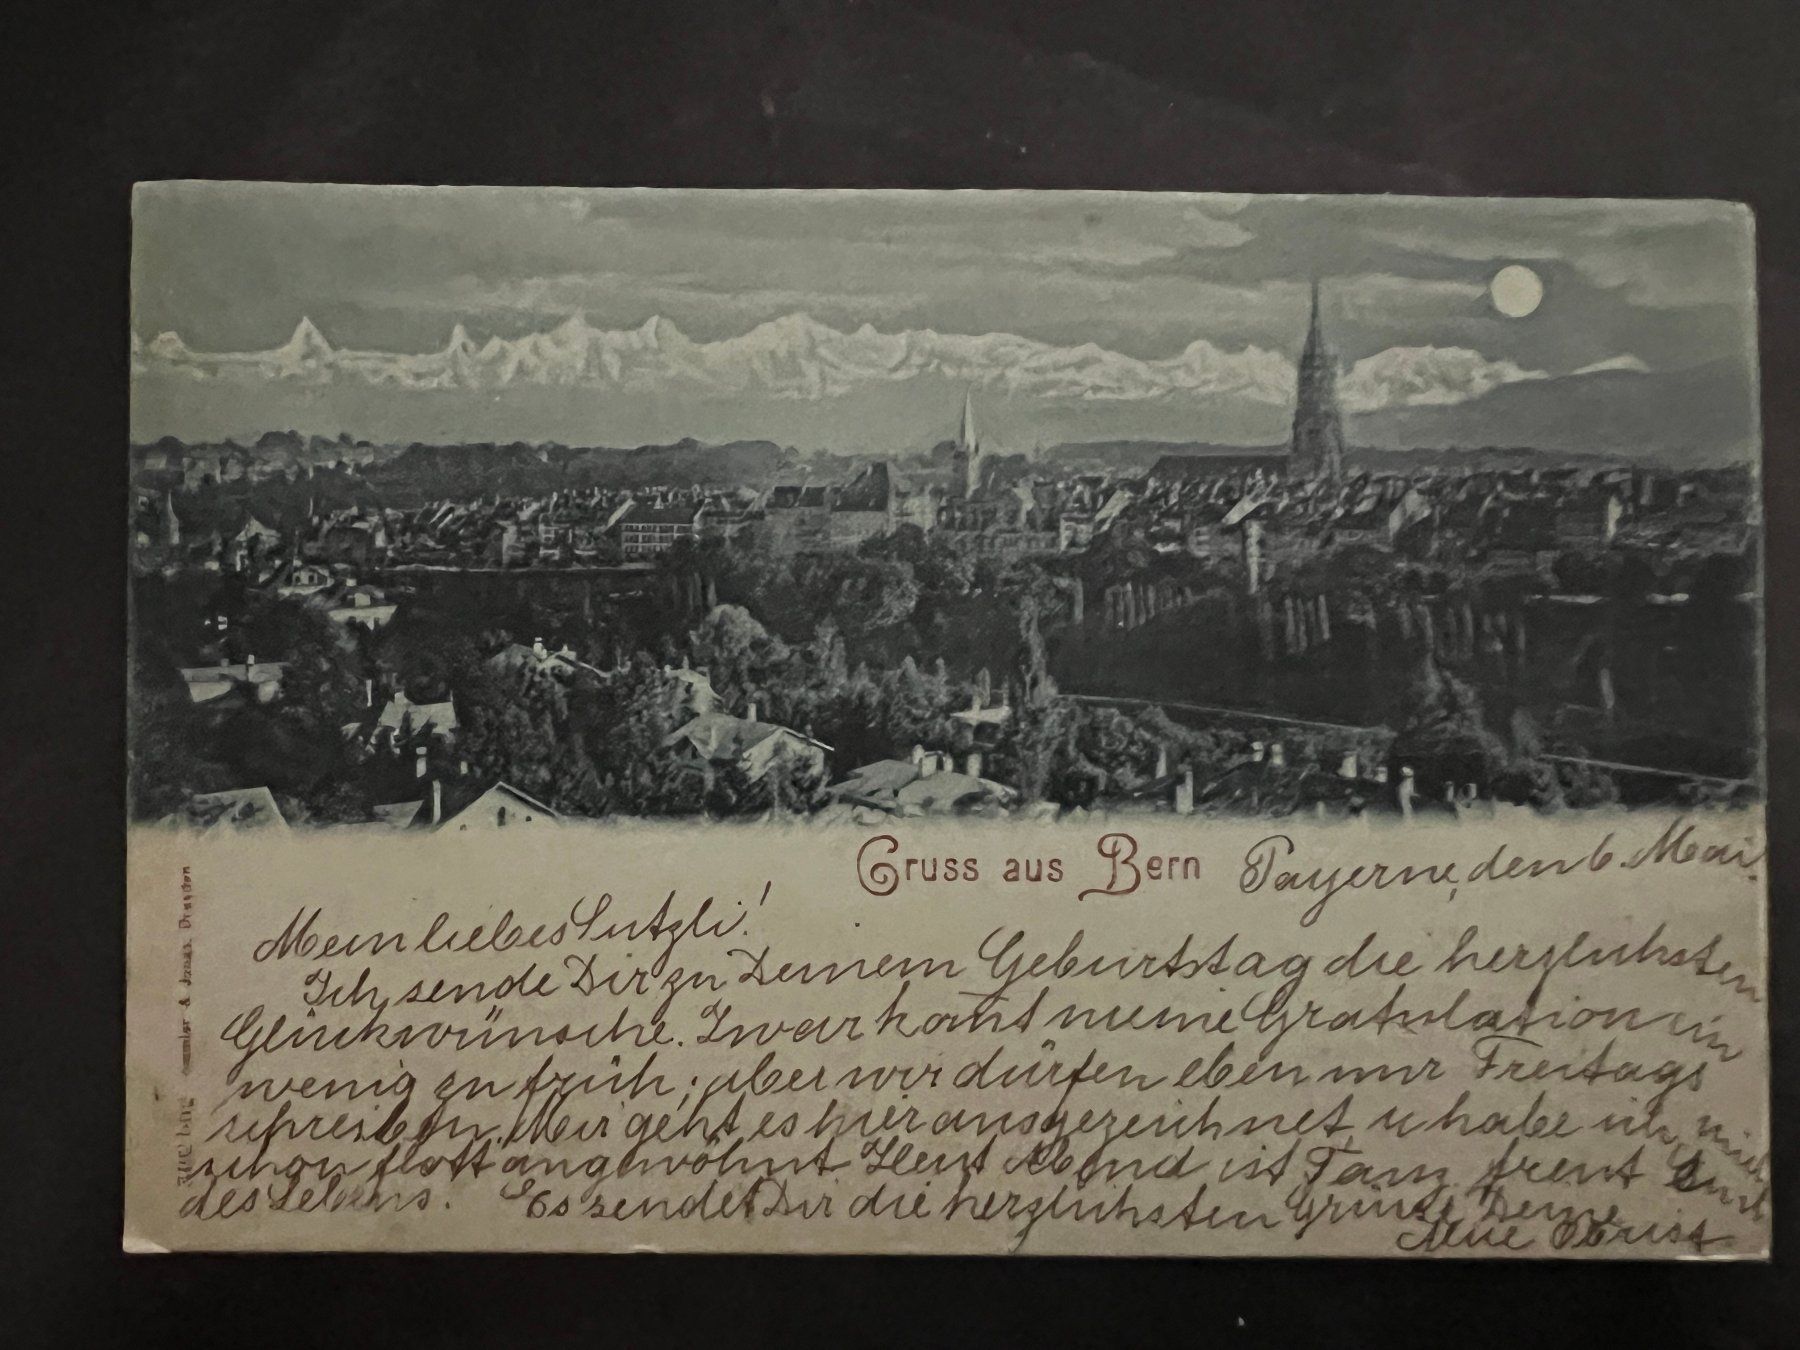 Gruss aus Bern
Payerne, den 6. Mai.
Mein liebes Lutzli!
Ich sende Dir zu Deinem Geburtstag die herzlichsten
Glückwünsche. Zwar kom̄t meine Gratulation ein
wenig zu früh; aber wir dürfen eben nur Freitags
schreiben. Mir geht es hier ausgezeichnet u habe ich mich
schon flott angewöhnt. Heut Abend ist Tanz freut Euch
des Lebens. Es sendet Dir die herzlichsten Grüsse Deine
& Jonas, Dresden